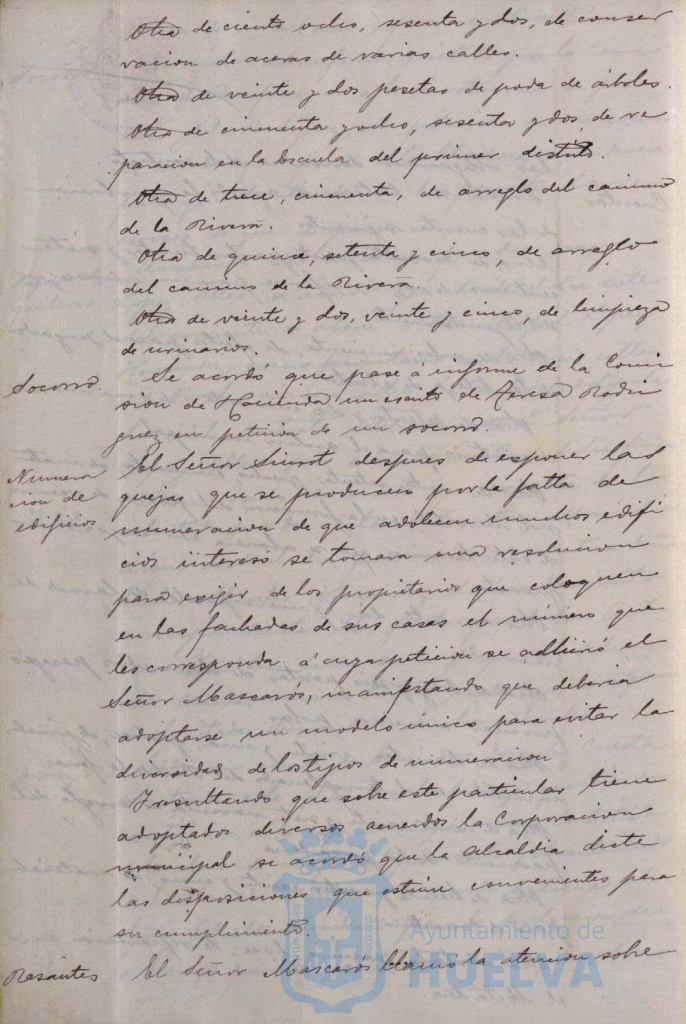 Otra de ciento ocho, sesenta y dos, de conser
vacion de aceras de varias calles.
Otra de veinte y dos pesetas de poda de árboles.
Otra de cincuenta y ocho, sesenta y dos, de re
paracion en la Escuela del primer distrito.
Otra de trece, cincuenta, de arreglo del camino
de la Rivera.
Otra de quince, setenta y cinco, de arreglo
del camino de la Rivera.
Otra de veinte y dos, veinte y cinco, de limpieza
de urinarios.
Socorro.
Se acordó que pase á informe de la Comi
sion de Hacienda un escrito de Teresa Rodri
guez en peticion de un socorro.
Numera
cion de
edificios
El Señor Siurot despues de esponer las
quejas que se producen por la falta de
numeracion de que adolecen muchos edifi
cios interesó se tomara una resolucion
para exigir de los propietarios que coloquen
en las fachadas de sus casas el número que
les corresponda. á cuya peticion se adhirió el
Señor Mascarós, manifestando que deberia
adoptarse un modelo único para evitar la
diversidad de los tipos de numeracion
Y resultando que sobre este particular tiene
adoptados diversos acuerdos la Corporacion
municipal se acordó que la alcaldia dicte
las disposiciones que estime convenientes para
su cumplimiento.
Rasantes
El Señor Mascarós llamó la atencion sobre
Ayuntamiento de
HUELVA